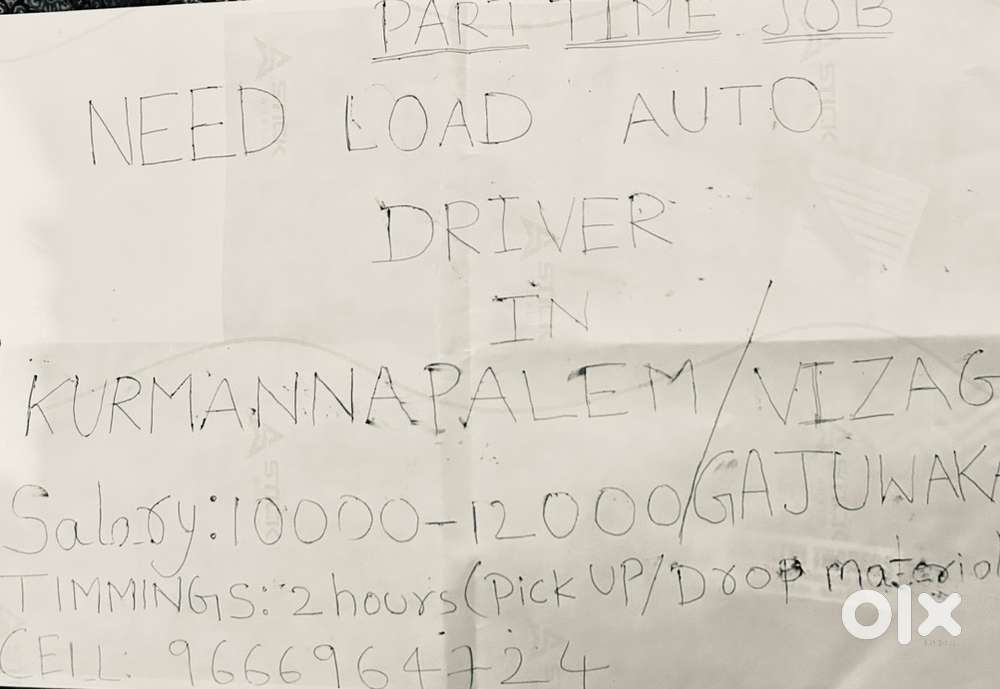 PART TIME JOB
NEED LOAD AUTO
DRIVER
IN
KURMANNAPALEM/VIZAG
Salary:10000-12000/GAJUWAKA
TIMMINGS: 2 hours (Pick UP/Drop material
CELL: 9666964724
olx